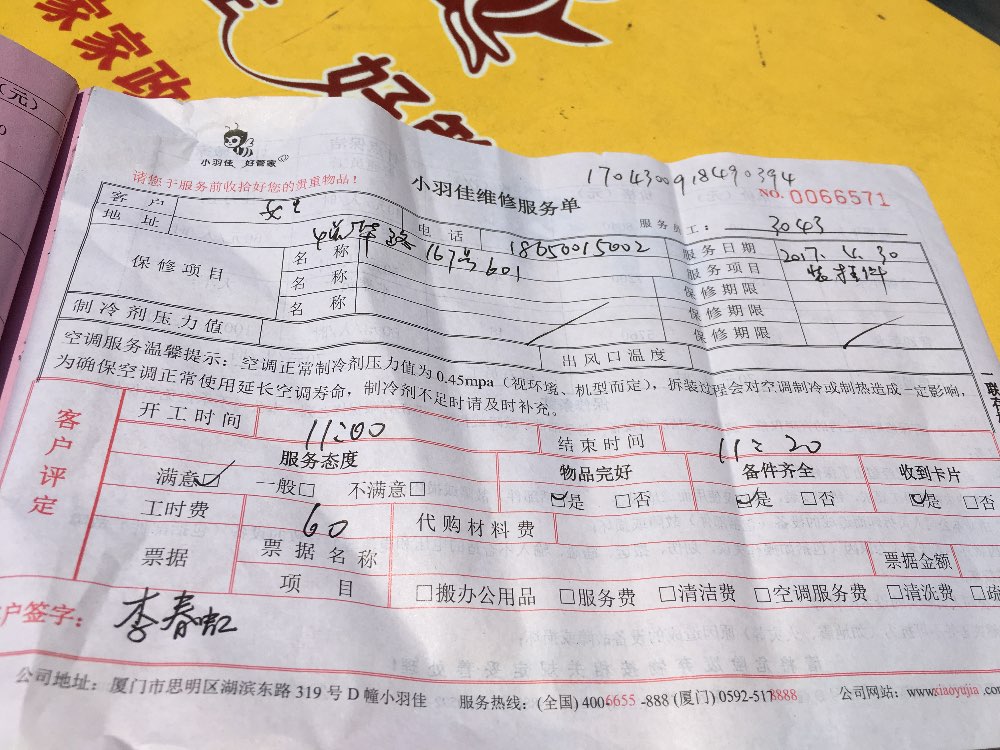 家家政
好
(元)
小羽佳 好管家
请您于服务前收拾好您的贵重物品!
小羽佳维修服务单
170430091849 0394
NO. 0066571
服务员工: 3043
客户 女士 电话 18650015002 服务日期 2017.4.30
地址 167号601 服务项目 装挂件
保修项目 名称 保修期限
名称 保修期限
名称 保修期限
制冷剂压力值 出风口温度
空调服务温馨提示:空调正常制冷剂压力值为0.45mpa(视环境、机型而定),拆装过程会对空调制冷或制热造成一定影响,
为确保空调正常使用延长空调寿命,制冷剂不足时请及时补充。
一联存
客户评定
开工时间 11:00 结束时间 11:20
服务态度 物品完好 备件齐全 收到卡片
满意☑ 一般□ 不满意□ ☑是 □否 ☑是 □否 ☑是 □否
工时费 60 代购材料费
票据 票据名称 票据金额
项目 □搬办公用品 □服务费 □清洁费 □空调服务费 □清洗费 □疏
户签字: 李春虹
公司地址:厦门市思明区湖滨东路319号D幢小羽佳 服务热线:(全国)400-6655-888(厦门)0592-5178888 公司网站:www.xiaoyujia.com